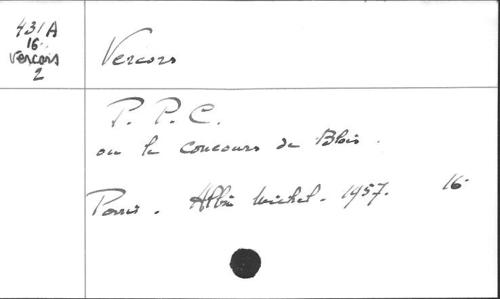 431A
16.
Vercors
2
Vercors
P. P. C.
ou le concours de Blois.
Paris. Albin Michel. 1957. 16.